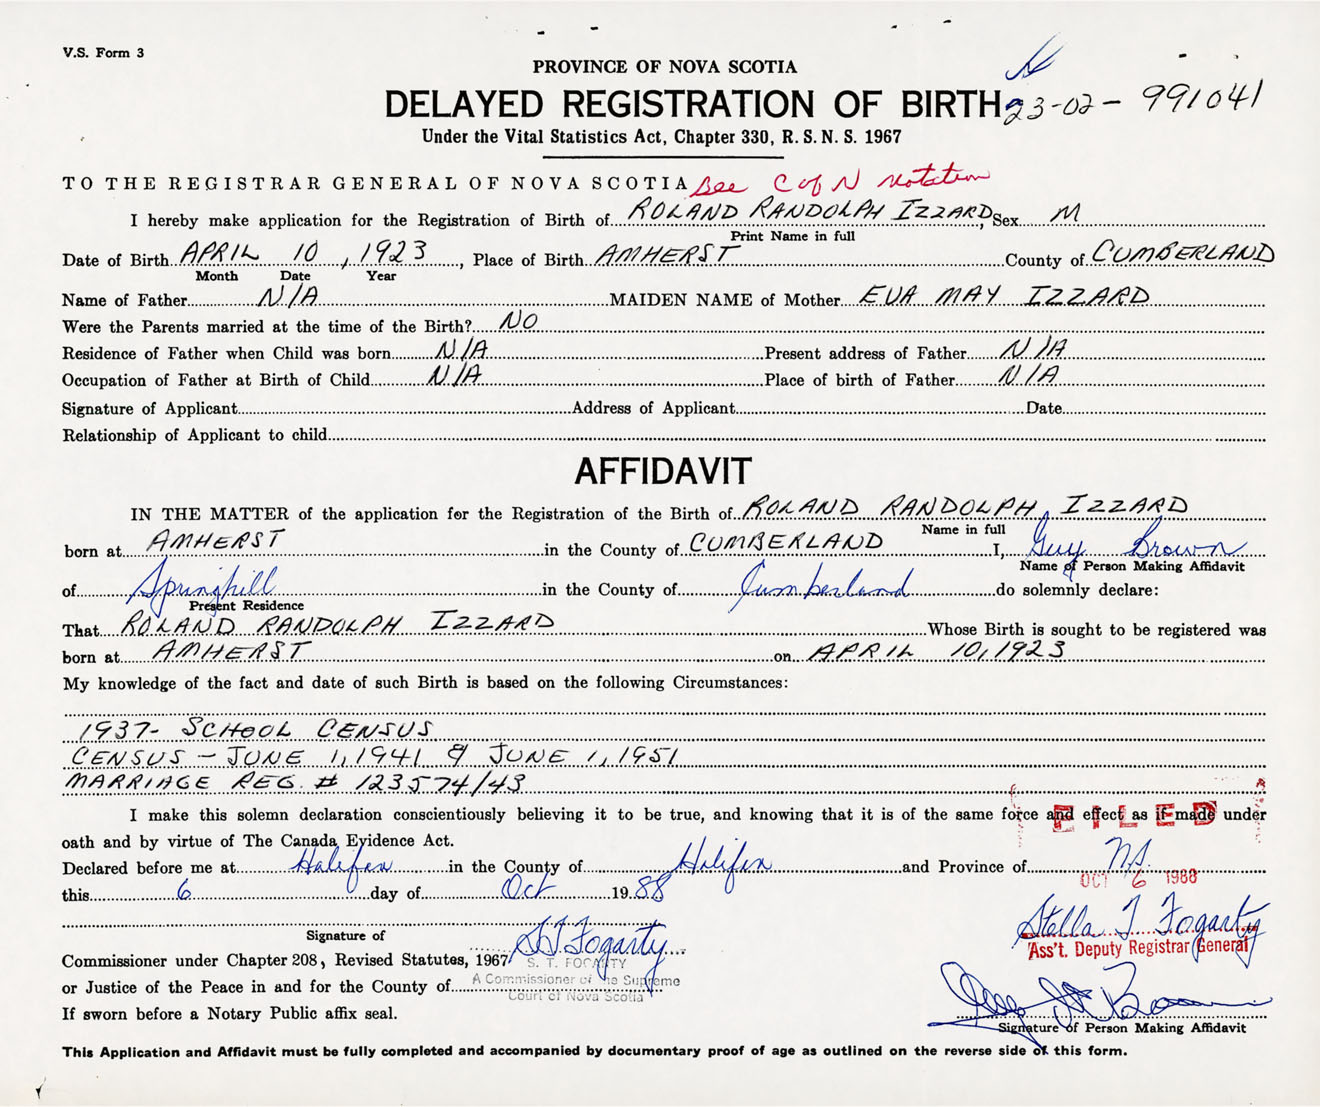 V.S. Form 3
PROVINCE OF NOVA SCOTIA
DELAYED REGISTRATION OF BIRTH 23-02-991041
Under the Vital Statistics Act, Chapter 330, R. S. N. S. 1967
TO THE REGISTRAR GENERAL OF NOVA SCOTIA See C of N notation
I hereby make application for the Registration of Birth of ROLAND RANDOLPH IZZARD, Sex M
Print Name in full
Date of Birth APRIL 10, 1923, Place of Birth AMHERST County of CUMBERLAND
Month Date Year
Name of Father N/A MAIDEN NAME of Mother EVA MAY IZZARD
Were the Parents married at the time of the Birth? NO
Residence of Father when Child was born N/A Present address of Father N/A
Occupation of Father at Birth of Child N/A Place of birth of Father N/A
Signature of Applicant Address of Applicant Date
Relationship of Applicant to child
AFFIDAVIT
IN THE MATTER of the application for the Registration of the Birth of ROLAND RANDOLPH IZZARD
Name in full
born at AMHERST in the County of CUMBERLAND I, Guy Brown
Name of Person Making Affidavit
of Springhill in the County of Cumberland do solemnly declare:
Present Residence
That ROLAND RANDOLPH IZZARD Whose Birth is sought to be registered was
born at AMHERST on APRIL 10, 1923
My knowledge of the fact and date of such Birth is based on the following Circumstances:
1937- SCHOOL CENSUS
CENSUS - JUNE 1, 1941 & JUNE 1, 1951
MARRIAGE REG. # 123574/43
I make this solemn declaration conscientiously believing it to be true, and knowing that it is of the same force and effect as if made under
FILED
oath and by virtue of The Canada Evidence Act.
Declared before me at Halifax in the County of Halifax and Province of N.S.
this 6 day of Oct 1988
OCT 6 1988
Stella T Fogarty
Ass't. Deputy Registrar General
Signature of S T Fogarty
Commissioner under Chapter 208, Revised Statutes, 1967
S. T. FOGARTY
or Justice of the Peace in and for the County of
A Commissioner of the Supreme
Court of Nova Scotia
If sworn before a Notary Public affix seal.
Signature of Person Making Affidavit
This Application and Affidavit must be fully completed and accompanied by documentary proof of age as outlined on the reverse side of this form.